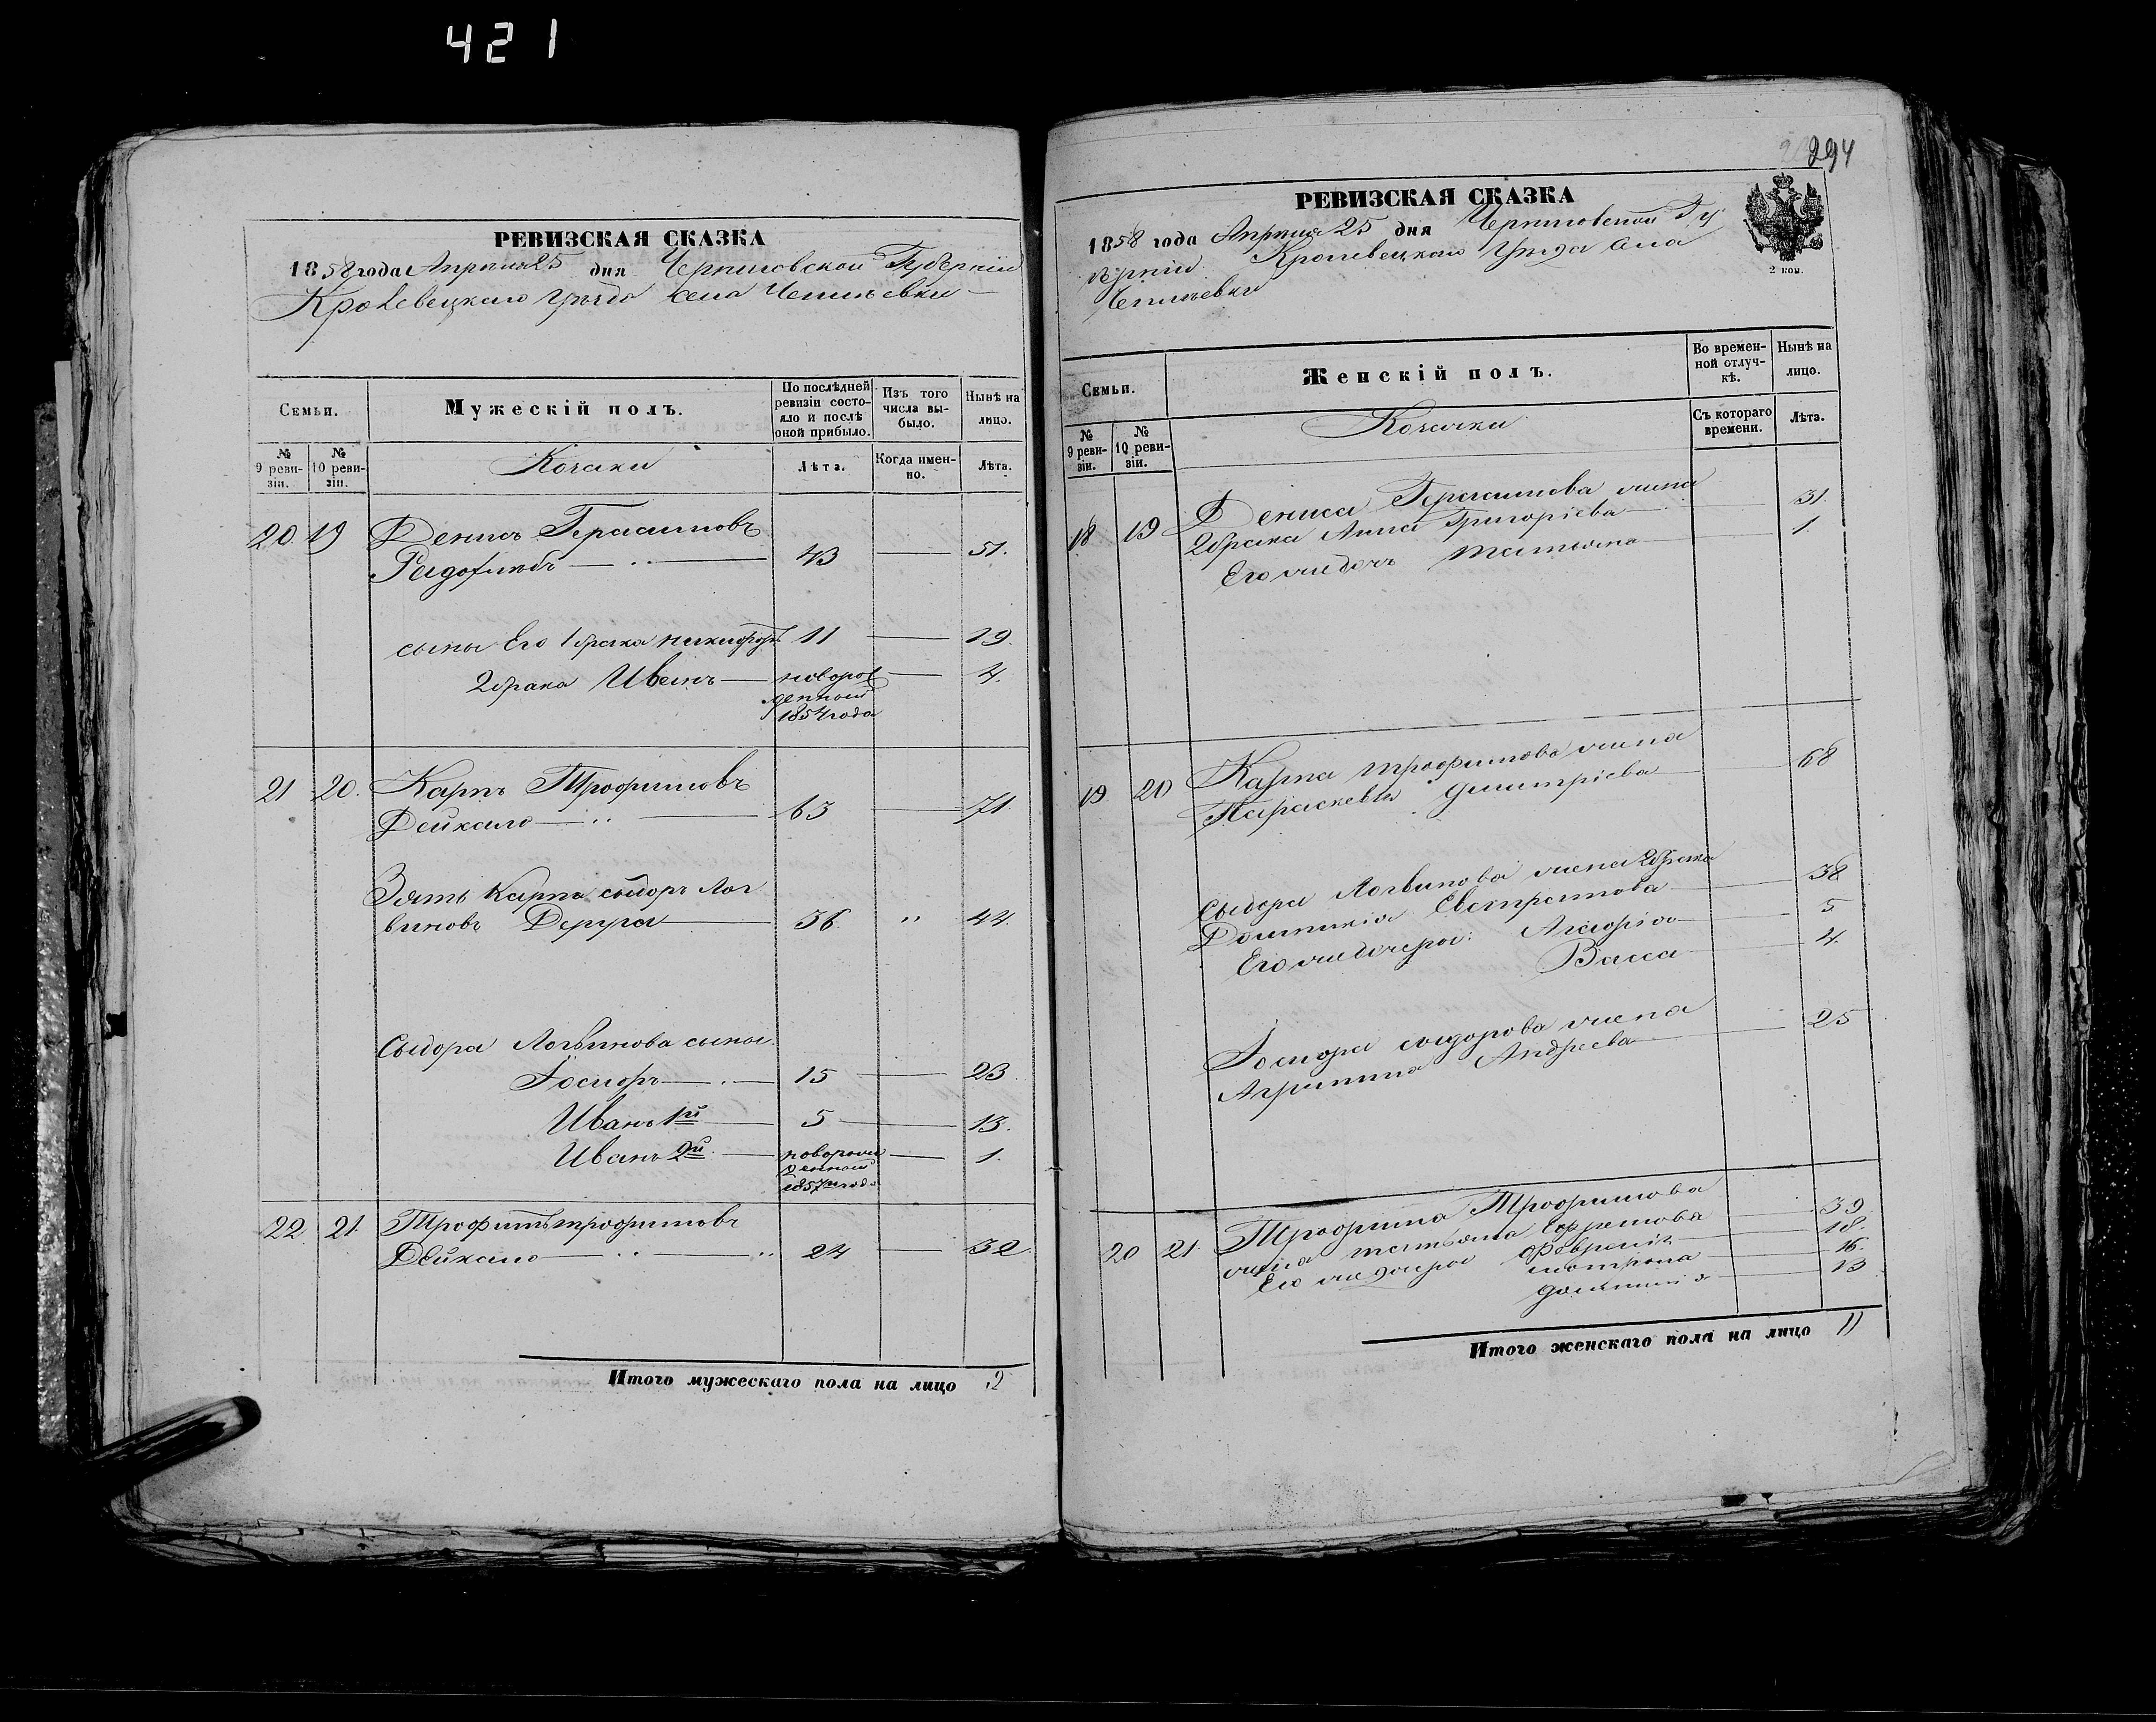 421
РЕВИЗСКАЯ СКАЗКА
1858 года Апреля 25 дня Черниговской Губернии
Кролевецкаго уезда села Чепиевки
Семьи.
Мужескій полъ.
По послѣдней ревизіи состояло и послѣ оной прибыло.
Изъ того числа выбыло.
Нынѣ на лицо.
№ 9 ревизіи.
№ 10 ревизіи.
Козаки
Лѣта.
Когда именно.
Лѣта.
20. 19 Денисъ Герасимовъ
43 51.
сыны Его 1 брака Никифоръ 11 19.
2 брака Иванъ новорож 4.
денный
1854 года
21 20. Карпъ Трофимовъ
Дейкало 63 71.
Зять Карпа Сыдоръ Лог
виновъ 36. " 44.
Сыдора Логвинова сыны
15 23.
Иванъ 1й 5 13.
Иванъ 2й новорож 1.
денный
1857 года
22. 21. Трофимъ Трофимовъ
Дейкало 24 32
Итого мужескаго пола на лицо
294
РЕВИЗСКАЯ СКАЗКА
1858 года Апреля 25 дня Черниговской Гу
берніи Кролевецкаго Уезда Села
Чепиевки
2 коп.
Семьи.
Женскій полъ.
Во временной отлучкѣ.
Нынѣ на лицо.
№ 9 ревизіи.
№ 10 ревизіи.
Козачки
Съ котораго времени.
Лѣта.
18 19 Дениса Герасимова жена
2 брака Анна Григоріева 31.
Его же дочь Татьяна 1.
19 20 Карпа Трофимова жена
Параскевія Дмитріева 68
Сыдора Логвинова жена 2 брака
Домникія Евстратова 38
Его же дочери: 5
Васса 4.
Сидорова жена
Агрипина Андреева 25
20 21. Трофима Трофимова
жена Татьяна Ефремова 39.
Его же дочери 18.
Мотрона 16.
13
Итого женскаго пола на лицо 11